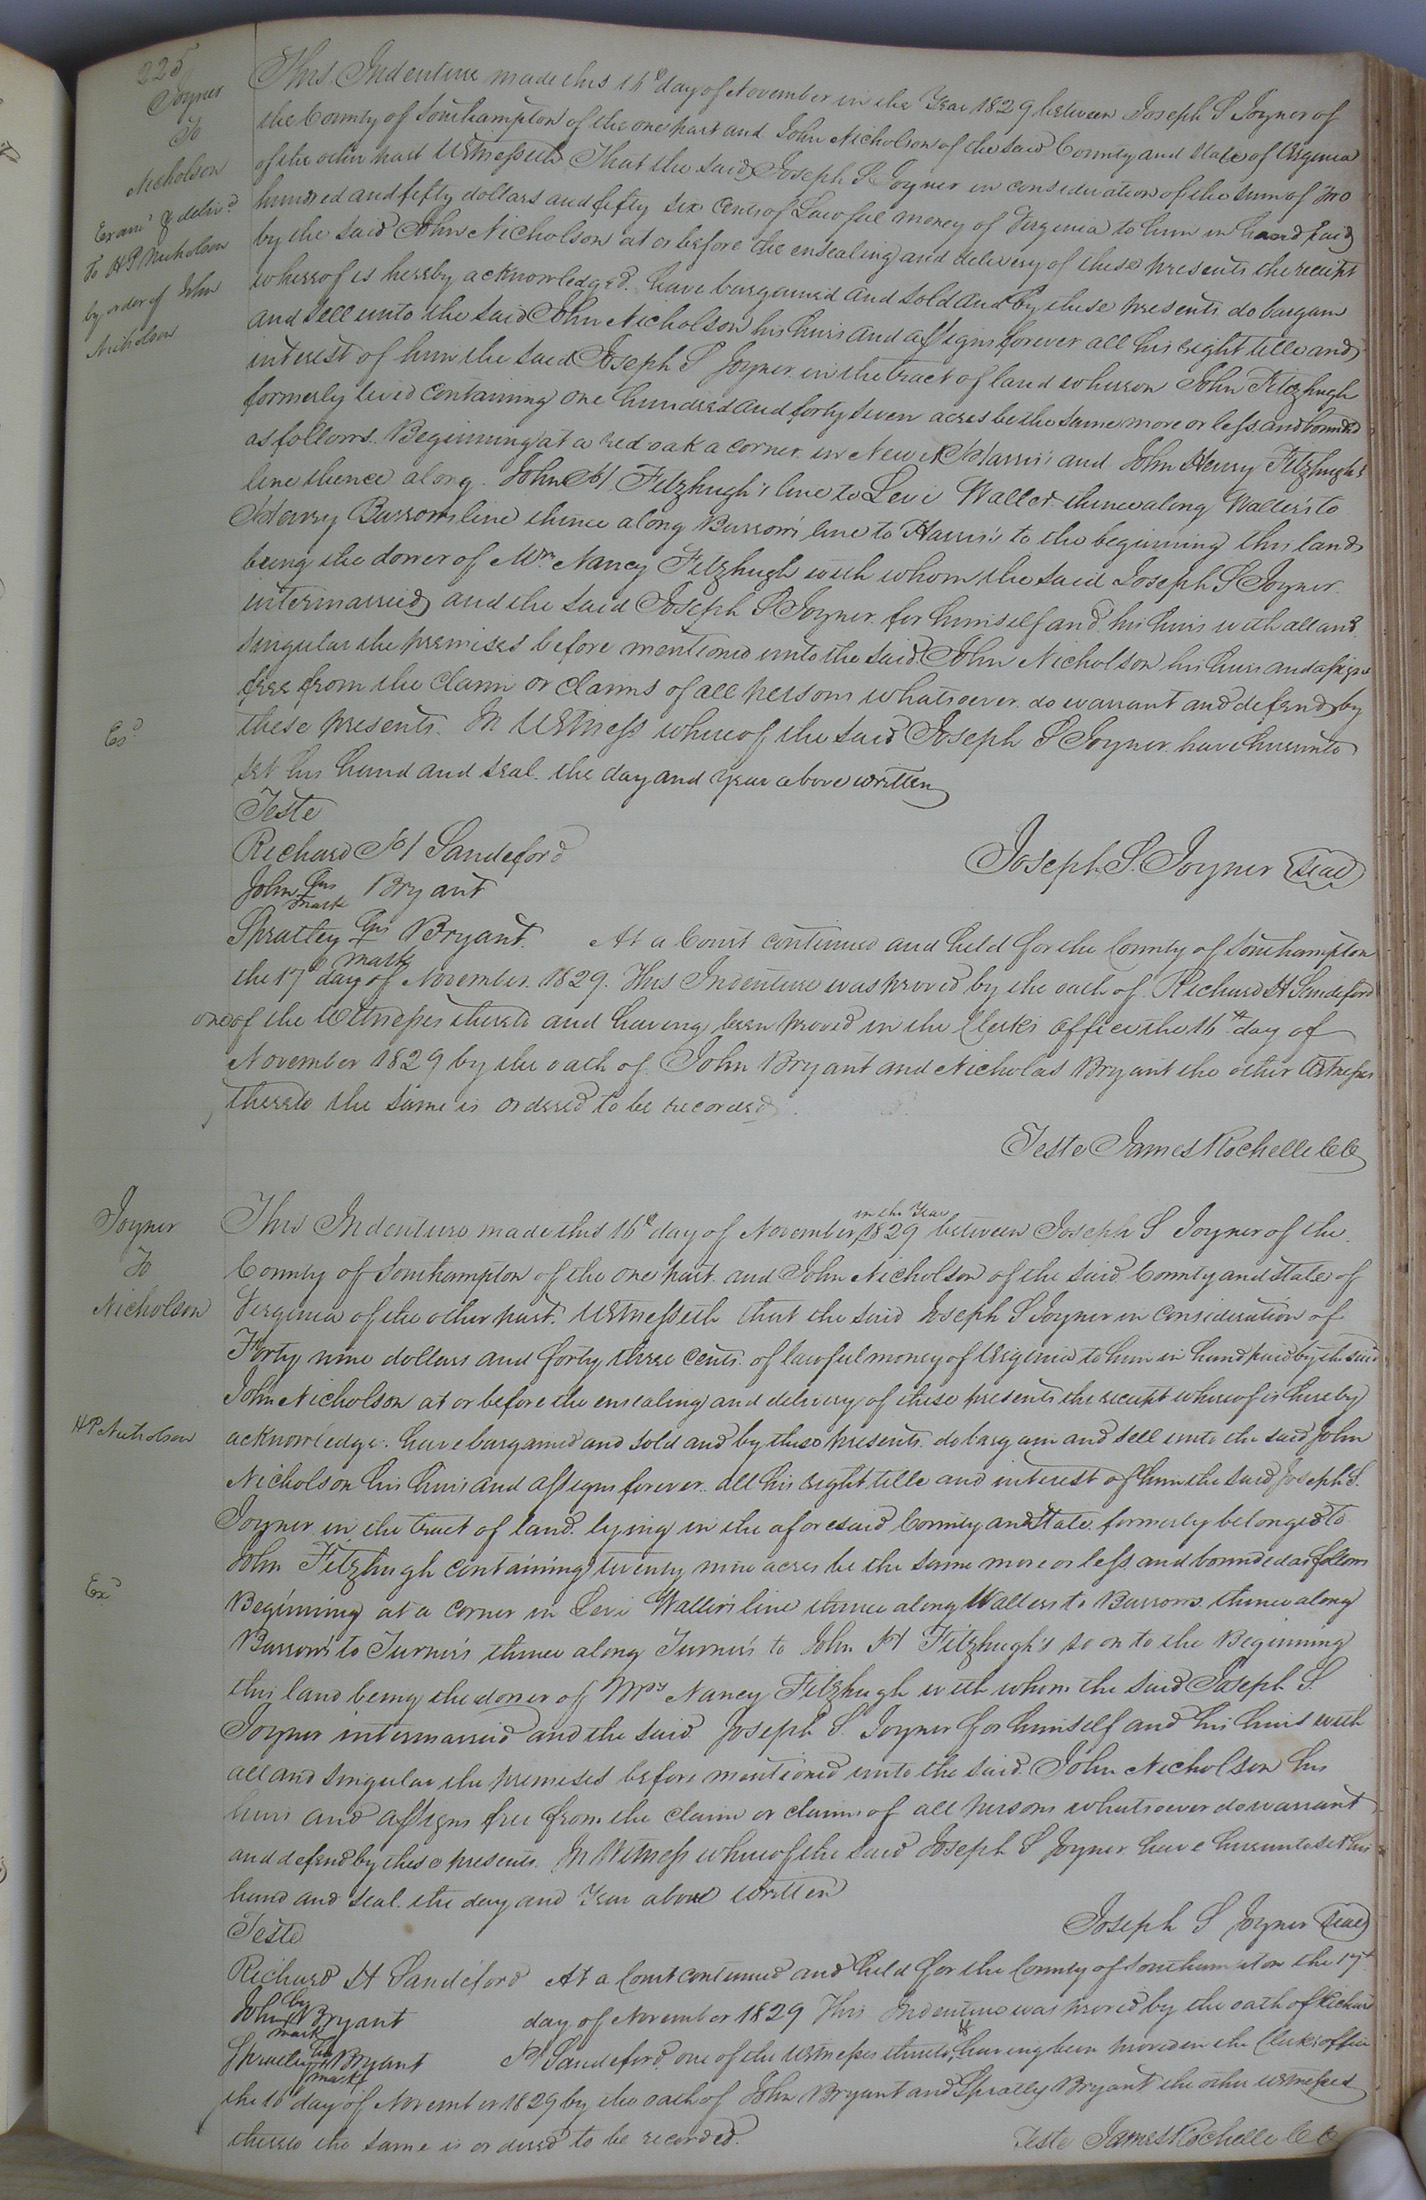 225
Joyner
To
Nicholson
Exam.d & deliv.d
To H P Nicholson
by order of John
Nicholson
This Indenture made this 16th day of November in the Year 1829 between Joseph S Joyner of
the County of Southampton of the one part and John Nicholson of the said County and State of Virginia
of the other part Witnesseth That the said Joseph S Joyner in consideration of the sum of two
hundred and fifty dollars and fifty six cents of Lawful money of Virginia to him in hand paid
by the said John Nicholson at or before the ensealing and delivery of these presents the receipt
whereof is hereby acknowledged. have bargained and sold and by these presents do bargain
and sell unto the said John Nicholson his heirs and assigns forever all his right title and
interest of him the said Joseph S Joyner in the tract of land whereon John Fitzhugh
formerly lived containing one hundred and forty seven acres be the same more or less and bounded
as follows. Beginning at a red oak a corner in Harris's and John Henry Fitzhugh's
line thence along John H Fitzhugh's line to Levi Waller thence along Waller's to
Henry Burrows line thence along Burrow's line to Harris's to the beginning this land
being the dower of Mrs Nancy Fitzhugh with whom the said Joseph S Joyner
intermarried and the said Joseph S Joyner for himself and his heirs with all and
singular the premises before mentioned unto the said John Nicholson his heirs and assigns
free from the claim or claims of all persons whatsoever do warrant and defend by
these presents. In Witness whereof the said Joseph S Joyner have hereunto
set his hand and seal the day and year above written
Ex.d
Teste
Richard H Sandeford
John his mark Bryant
Joseph S. Joyner (seal)
Spratley his mark Bryant. At a Court continued and held for the County of Southampton
the 17th day of November 1829. This Indenture was proved by the oath of Richard H Sandeford
one of the Witnesses thereto and having been proved in the Clerks office the 16th day of
November 1829 by the oath of John Bryant and Nicholas Bryant the other Witnesses
thereto the same is ordered to be recorded.
Teste James Rochelle CC
Joyner
To
Nicholson
H P Nicholson
Ex.d
This Indenture made this 16th day of November in the Year 1829 between Joseph S Joyner of the
County of Southampton of the one part and John Nicholson of the said County and state of
Virginia of the other part. Witnesseth that the said Joseph S Joyner in consideration of
Forty nine dollars and forty three cents of lawful money of Virginia to him in hand paid by the said
John Nicholson at or before the ensealing and delivery of these presents the receipt whereof is hereby
acknowledge. have bargained and sold and by these presents do bargain and sell unto the said John
Nicholson his heirs and assigns forever. all his right title and interest of him the said Joseph S.
Joyner in the tract of land lying in the aforesaid County and State formerly belonged to
John Fitzhugh containing twenty nine acres be the same more or less and bounded as follows
Beginning at a corner in Levi Waller's line thence along Wallers to Burrows thence along
Burrow's to Turner's thence along Turner's to John H Fitzhugh's so on to the Beginning
this land being the dower of Mrs Nancy Fitzhugh with whom the said Joseph S.
Joyner intermarried and the said Joseph S. Joyner for himself and his heirs with
all and singular the premises before mentioned unto the said John Nicholson his
heirs and assigns free from the claim or claims of all persons whatsoever do warrant
and defend by these presents. In Witness whereof the said Joseph S Joyner have hereunto set his
hand and seal the day and Year above written
Teste
Joseph S Joyner (seal)
Richard H Sandeford At a Court continued and held for the County of Southampton the 17th
John by mark Bryant day of November 1829 This Indenture was proved by the oath of Richard
Spratley his mark Bryant H Sandeford one of the Witnesses thereto & having been proved in the Clerks office
the 16th day of November 1829 by the oath of John Bryant and Spratley Bryant the other witnesses
thereto the same is ordered to be recorded.
Teste James Rochelle CC